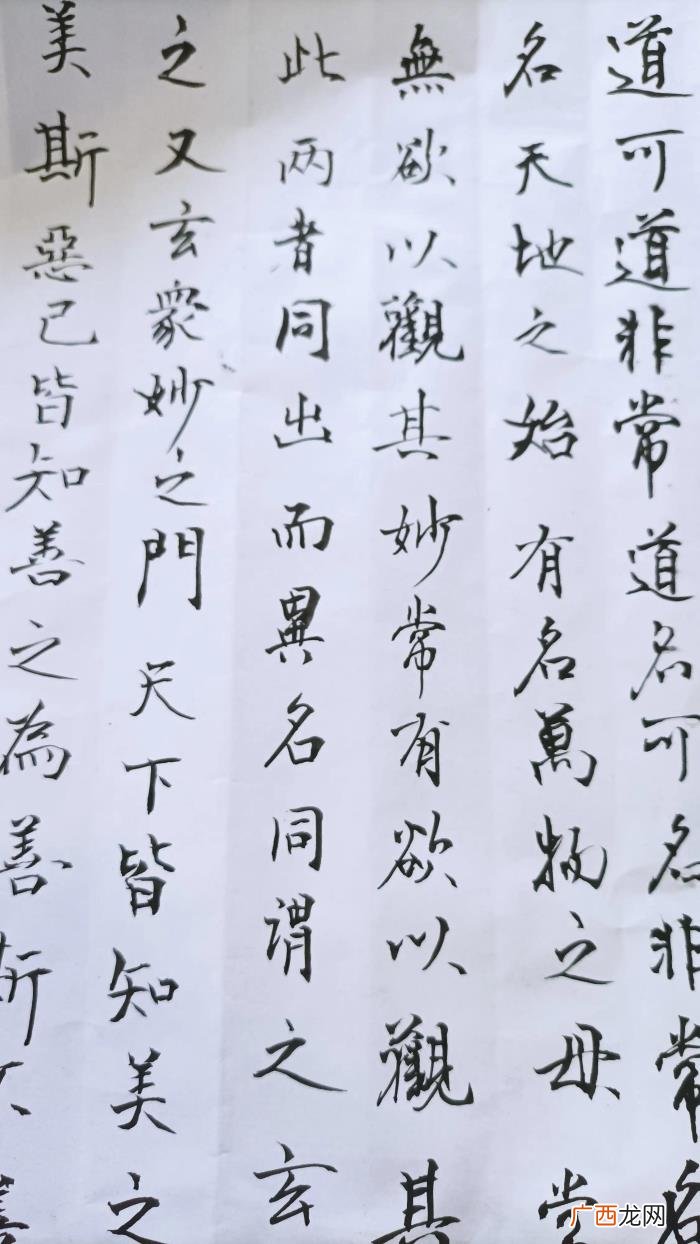 道可道非常道名可名非常名
名天地之始有名萬物之母常
無欲以觀其妙常有欲以觀其
此两者同出而異名同謂之玄
之又玄衆妙之門天下皆知美之
美斯惡已皆知善之為善斯不善
广西龙网